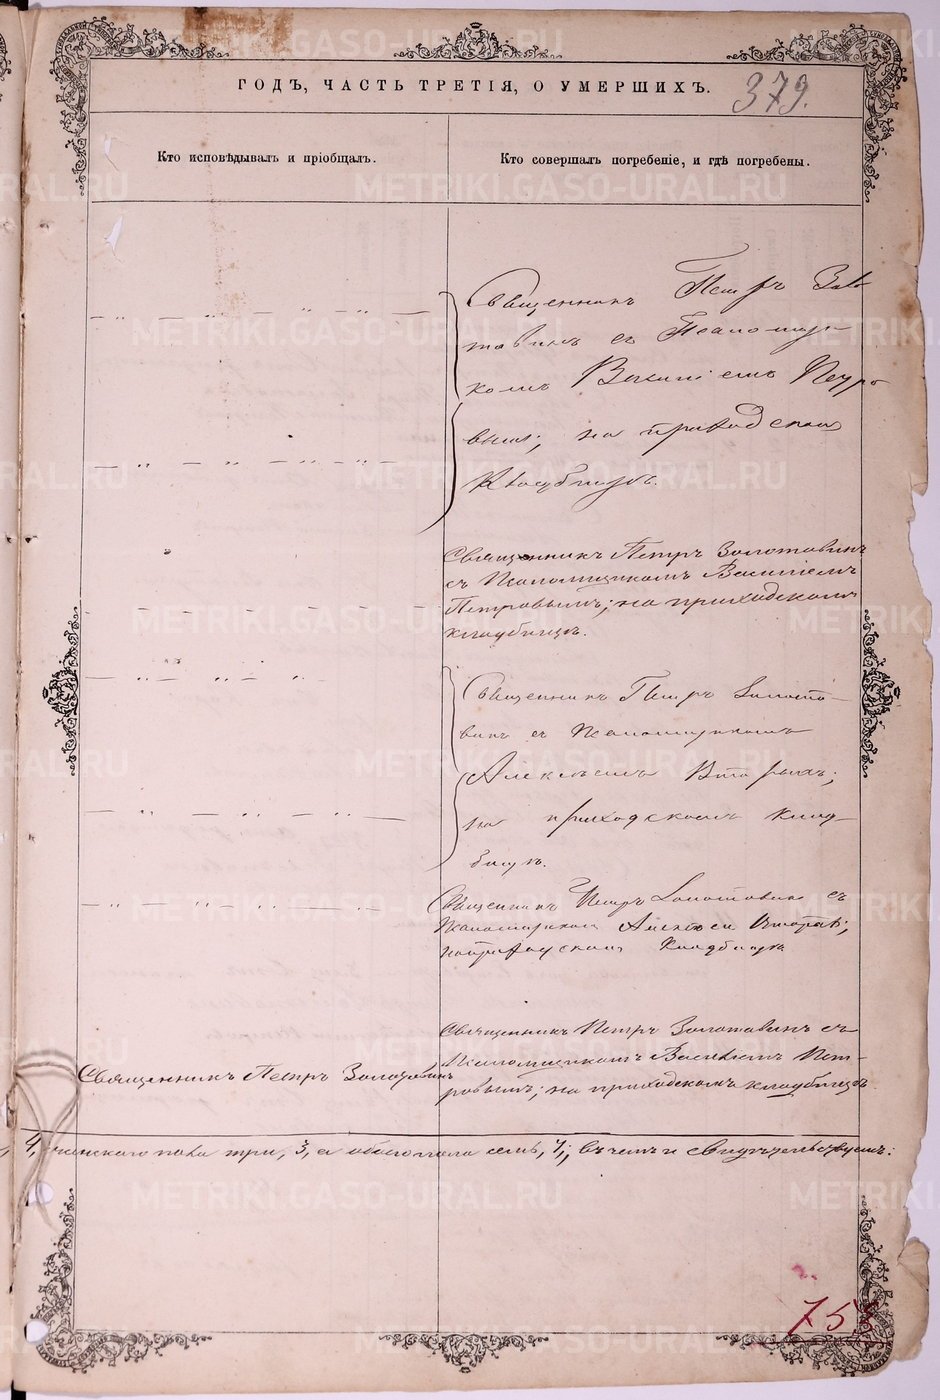 ГОДЪ, ЧАСТЬ ТРЕТІЯ, О УМЕРШИХЪ.
379.
Кто исповѣдывалъ и пріобщалъ.
Кто совершалъ погребеніе, и гдѣ погребены.
Священникъ Петръ Золо
товинъ съ Псаломщи-
комъ Василіемъ Петро
вымъ; на приходскомъ
Кладбищѣ.
Священникъ Петръ Золотовинъ
съ Псаломщикомъ Василіемъ
Петровымъ; на приходскомъ
кладбищѣ.
Священникъ Петръ Золото-
винъ съ Псаломщикомъ
Алексѣемъ Вторыхъ;
на приходскомъ клад-
бищѣ.
Священникъ Петръ Золотовинъ съ
Псаломщикомъ
Кладбищѣ
Священникъ Петръ Золотовинъ съ
Псаломщикомъ Василіемъ Пет-
ровымъ; на приходскомъ кладбищѣ
Священникъ Петръ Золотовинъ
4, женскаго пола три, 3, а обоего пола семь, 7; въ чемъ и свидѣтельствуемъ:
METRIKI.GASO-URAL.RU